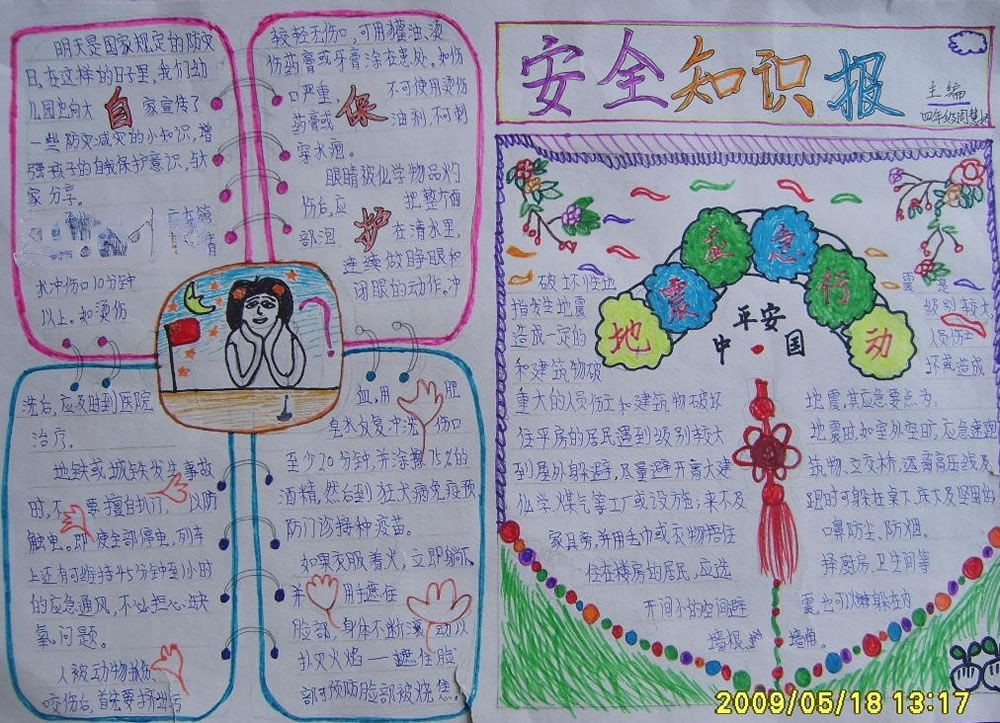 明天是国家规定的防灾
日,在这样的日子里,我们幼
儿园也向大 自 家宣传了
一些防灾减灾的小知识,增
强孩子的自我保护意识,与大
家分享。
水冲伤口10分钟
以上。如烫伤
较轻无伤口,可用獾油、烫
伤药膏或牙膏涂在患处。如伤
口严重 保 不可使用烫伤
药膏或 油剂,不可刺
穿水疱。
眼睛被化学物品灼
伤后,应 把整方面
部泡 护 在清水里,
连续做睁眼和
闭眼的动作。冲
洗后,应及时到医院
治疗。
地铁或城铁发生事故
时,不要擅自扒门,以防
触电。即使全部停电,列车
上还有可维持45分钟至1小时
的应急通风,不必担心缺
氧问题。
人被动物抓伤、
咬伤后,首先要挤出污
血,用肥
皂水反复冲洗伤口
至少20分钟,并涂擦75%的
酒精,然后到狂犬病免疫预
防门诊接种疫苗。
如果衣服着火,立即躺下,
并 用手遮住
脸部,身体不断滚动以
扑灭火焰——遮住脸
部可预防脸部被烧焦。
安全知识报
主编
四年级周慧
地震应急行动
平安
中·国
破坏性地 震是
指发生地震 级别较大,
造成一定的 人员伤亡
和建筑物破 坏或造成
重大的人员伤亡和建筑物破坏 地震,其应急要点为:
住平房的居民遇到级别较大 地震时,如室外空时,应急速跑
到屋外躲避,尽量避开高大建 筑物、立交桥,远离高压线及
化学、煤气等工厂或设施,来不及 跑时可躲在桌下、床下及坚固的
家具旁,并用毛巾或衣物捂住 口鼻防尘、防烟。
住在楼房的居民,应选 择厨房、卫生间等
开间小的空间避 震,也可以躲在内
墙根、 墙角。
2009/05/18 13:17